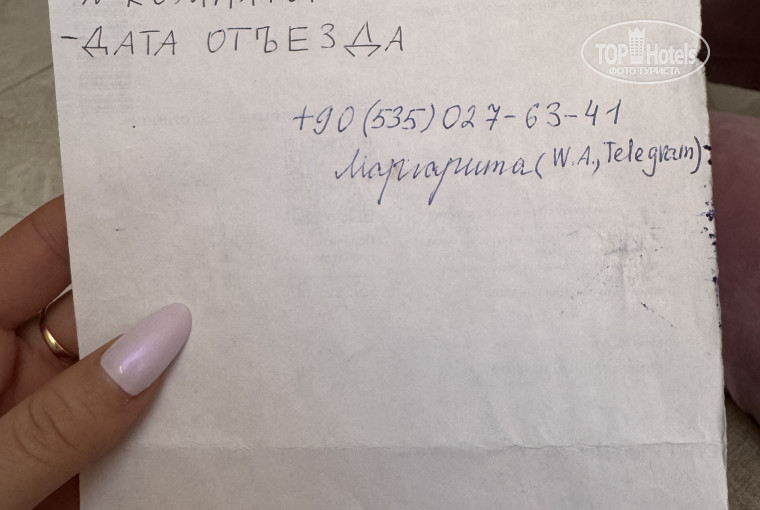 -ДАТА ОТЪЕЗДА
+90(535)027-63-41
Маргарита (W.A., Telegram)
TOP Hotels
ФОТО ТУРИСТА